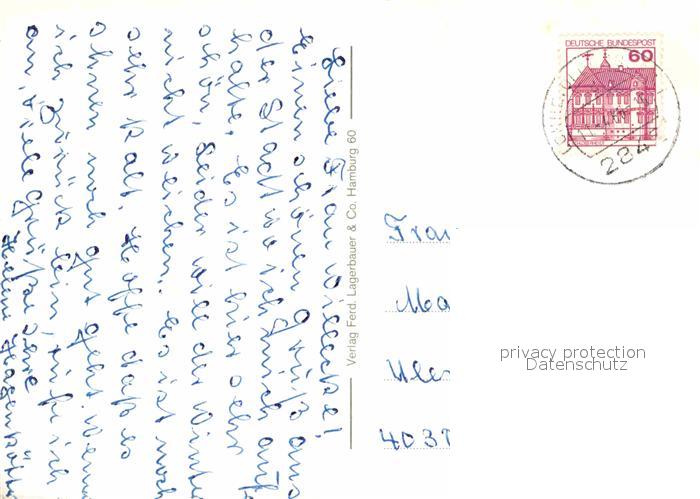 Liebe Frau Willecke!
Einen schönen Gruß aus
der Stadt wo ich mich auf
halte. Es ist hier sehr
schön, leider will der Winter
nicht weichen. Es ist noch
sehr kalt. Hoffe daß es
ihnen noch gut geht. Wenn
ich zurück bin, rufe ich
an, viele Grüße Ihre
Helene
Verlag Ferd. Lagerbauer & Co. Hamburg 60
DEUTSCHE BUNDESPOST
60
284
Frau
Ma
4031
privacy protection
Datenschutz